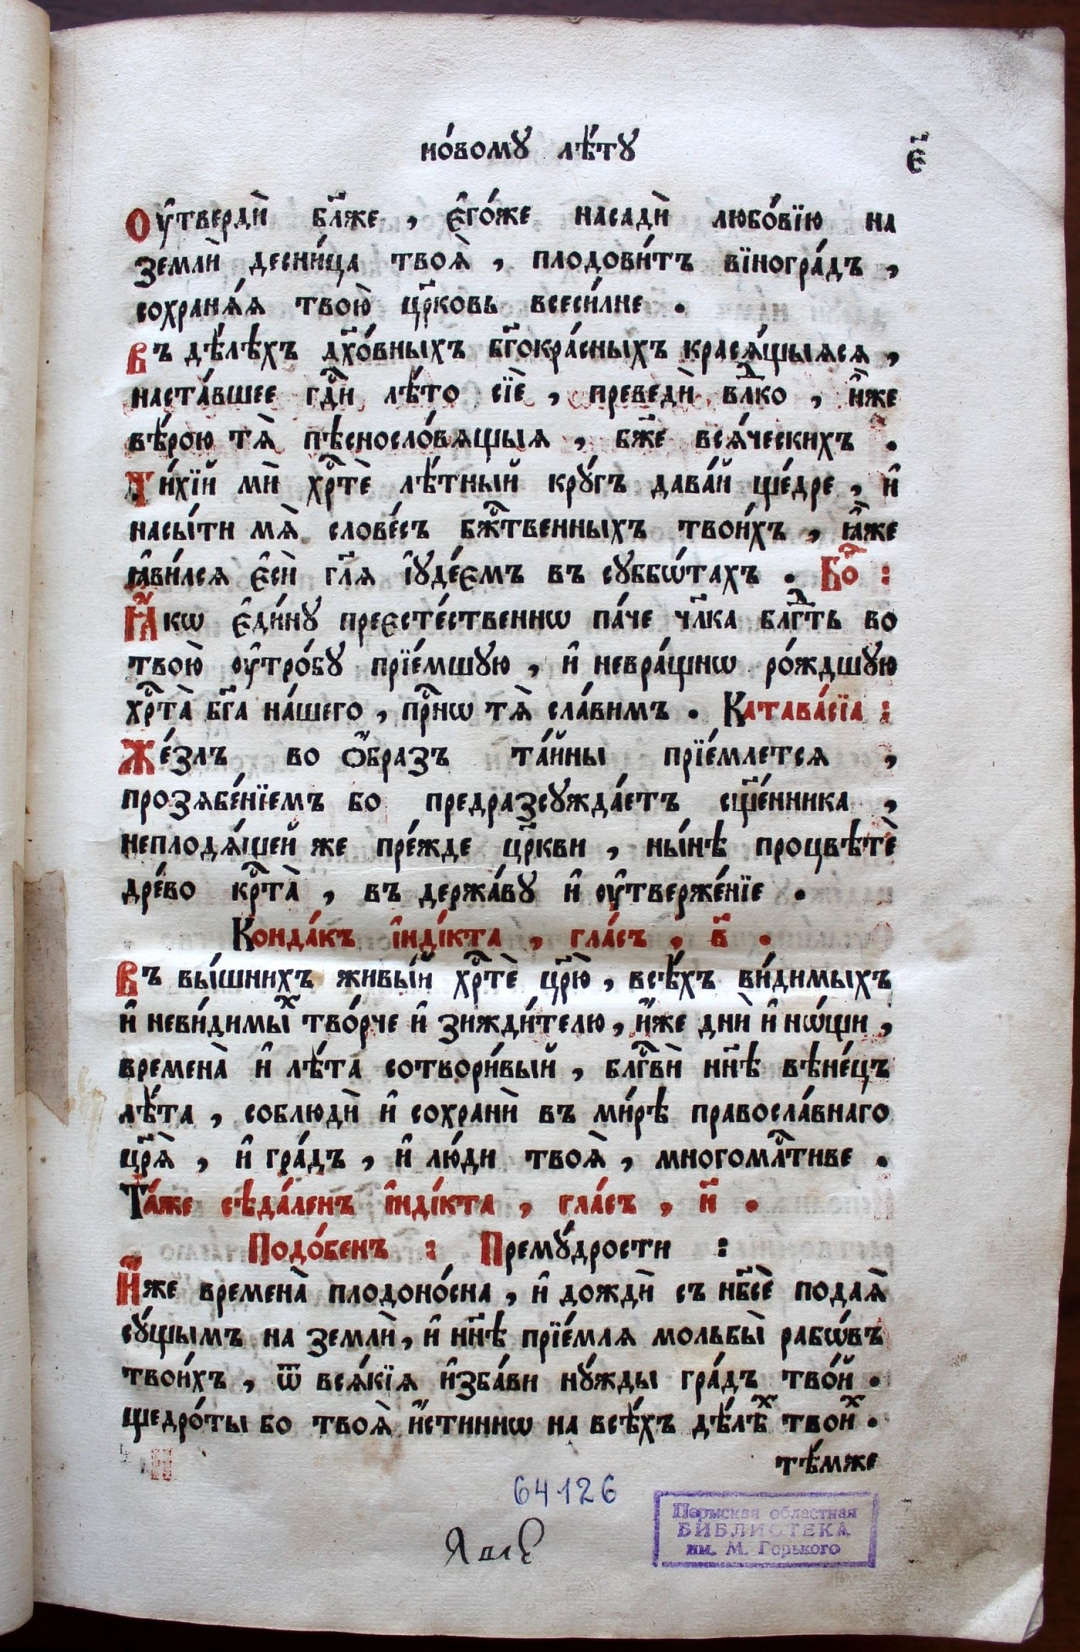 но́вомꙋ лѣ́тꙋ
є҃
Оу҆твердѝ бл҃же , є҆го́же насадѝ любо́вїю на
землѝ десни́ца твоѧ̀ , плодови́тъ вїногра́дъ ,
сохранѧ́ѧ твою̀ цр҃ковь всеси́лне .
Въ дѣ́лѣхъ дꙋхо́вныхъ бг҃окра́сныхъ красѧ́щыѧсѧ ,
наста́вшее гдⷭ҇и лѣ́то сїѐ , преведѝ влⷣко , и҆̀же
вѣ́рою тѧ̀ пѣснослово́вѧщыѧ , бж҃е всѧ́ческихъ .
Ти́хїй мѝ хрⷭ҇тѐ лѣ́тный крꙋ́гъ дава́й ще́дре , и҆
насы́ти мѧ̀ слове́съ бжⷭ҇твенныхъ твои́хъ , ꙗ҆̀же
ꙗ҆ви́лсѧ є҆сѝ гл҃ѧ і҆ꙋде́ємъ въ сꙋббѡ́тахъ . Бо҃ :
Ꙗ҆́кѡ є҆ди́нꙋ преєсте́ственнѡ па́че чл҃ка блгⷣть во
твою̀ оу҆тро́бꙋ прїе́мшꙋю , и҆ невра́щнѡ ро́ждшꙋю
хрⷭ҇та̀ бг҃а на́шего , прⷭ҇нѡ тѧ̀ сла́вимъ . Катава́сїа :
Же́злъ во ѻ҆́бразъ та́йны прїе́млетсѧ ,
прозѧбе́нїемъ бо предразсꙋжда́етъ сщ҃е́нника ,
неплодѧ́щей же пре́жде цр҃кви , ны́нѣ процвѣтѐ
дре́во крⷭ҇та̀ , въ держа́вꙋ и҆ оу҆тверже́нїе .
Конда́къ і҆ндⷪ҇і́кта , гла́съ , в҃ .
Въ вы́шнихъ живы́й хрⷭ҇тѐ цр҃ю̀ , всѣ́хъ ви́димыхъ
и҆ неви́димыⷯ тво́рче и҆ зижди́телю , и҆́же днѝ и҆ нѡ́щи ,
времена̀ и҆ лѣ́та сотвори́вый , блгⷭ҇вѝ нн҃ѣ вѣне́цъ
лѣ́та , соблюдѝ и҆ сохранѝ въ ми́рѣ правосла́внаго
цр҃ѧ̀ , и҆ гра́дъ , и҆ лю́ди твоѧ̀ , многомлⷭ҇тиве .
Та́же сѣда́ленъ і҆нді́кта , гла́съ , и҃ .
Подо́бенъ : Премꙋ́дрости :
И҆́же времена̀ плодоно́сна , и҆ дождѝ съ нб҃сѐ пода́ѧ
сꙋ́щымъ на землѝ , и҆ нн҃ѣ прїе́млѧ мольбы̀ рабѡ́въ
твои́хъ , ѿ всѧ́кїѧ и҆зба́ви нꙋ́жды гра́дъ тво́й .
щедро́ты бо твоѧ̀ и҆́стиннѡ на всѣ́хъ дѣ́лѣⷯ твоиⷯ .
тѣ́мже
64126
Пермская областная
БИБЛИОТЕКА
им. М. Горького